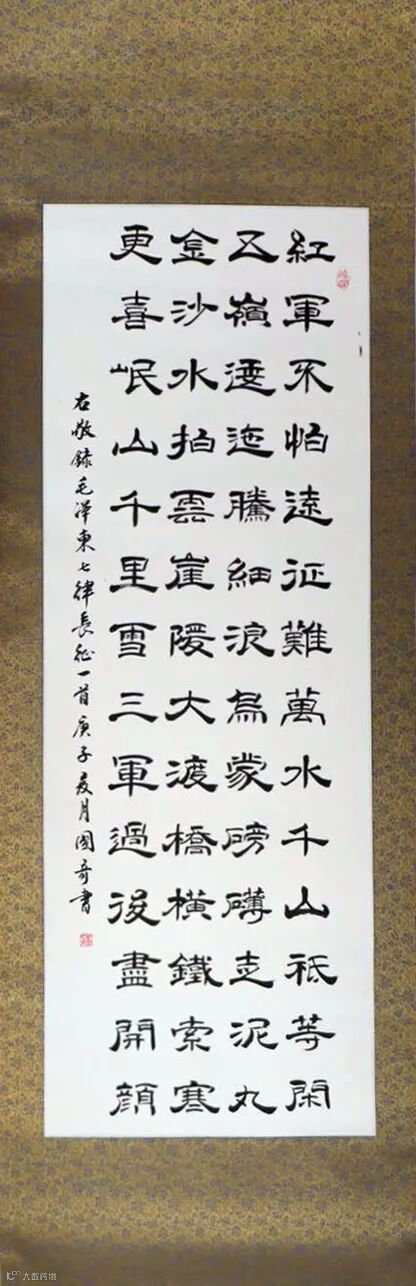 紅軍不怕遠征難萬水千山祗等閑
五嶺逶迤騰細浪烏蒙磅礴走泥丸
金沙水拍雲崖暖大渡橋橫鐵索寒
更喜岷山千里雪三軍過後盡開顔
右敬錄毛澤東七律長征一首庚子夏月國奇書
大數跨境